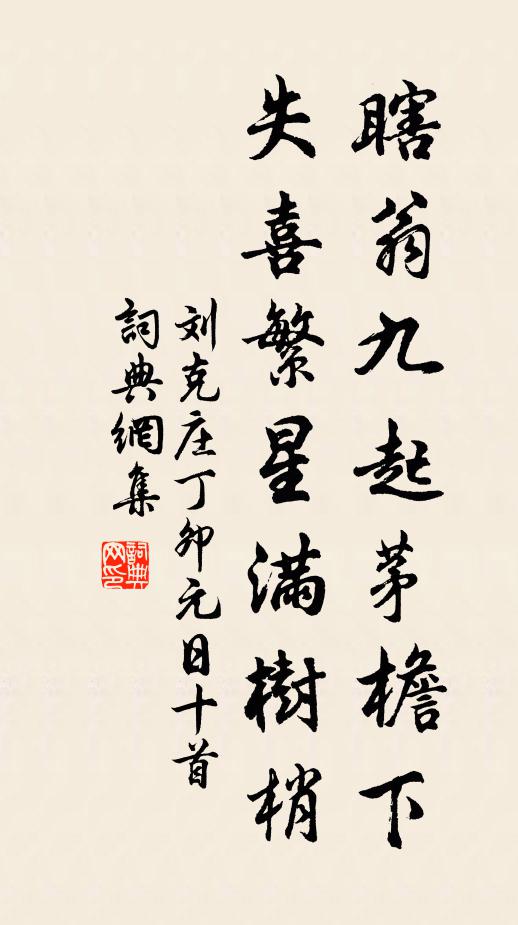 瞎翁九起茅檐下
失喜繁星滿樹梢
刘克庄丁卯元日十首
詞典網集
詞典
网印